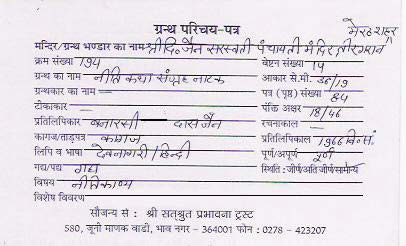 ग्रन्थ परिचय-पत्र
मेरठ शहर
मन्दिर/ग्रन्थ भण्डार का नाम श्री दि० जैन सरस्वती पंचायती मंदिर तीरगरान
क्रम संख्या 194 वेष्टन संख्या 14
ग्रन्थ का नाम नीति कथा संग्रह नाटक आकार से.मी. 36/19
ग्रन्थकार का नाम — पत्र (पृष्ठ) संख्या 84
टीकाकार — पंक्ति अक्षर 18/46
प्रतिलिपिकार बनारसी दास जैन रचनाकाल —
कागज/ताड़पत्र कागज प्रतिलिपिकाल 1966 वि० सं०
लिपि व भाषा देवनागरी/हिन्दी पूर्ण/अपूर्ण पूर्ण
गद्य/पद्य गद्य स्थिति : जीर्ण/अति जीर्ण/सामान्य
विषय नीतिकाव्य
विशेष विवरण
सौजन्य से : श्री सतश्रुत प्रभावना ट्रस्ट
580, जूनी माणक वाडी, भाव नगर - 364001 फोन : 0278 - 423207